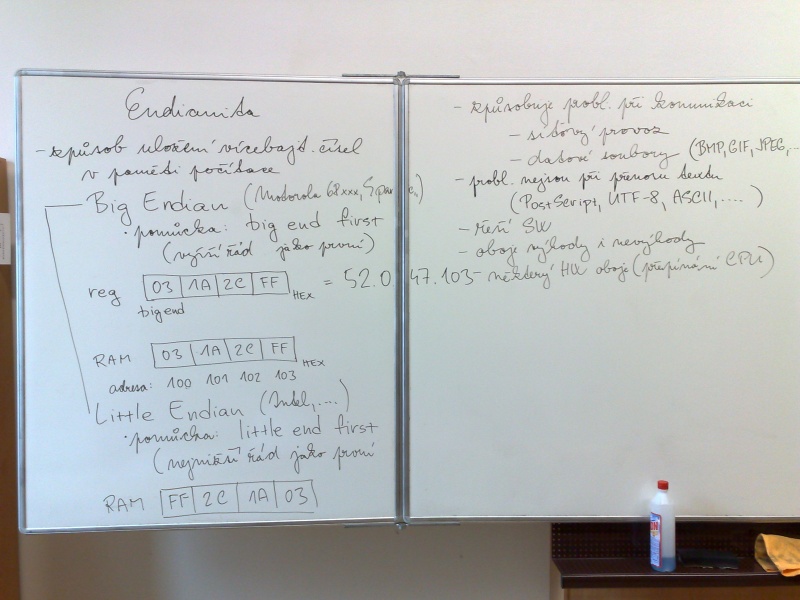 Endianita
- způsob uložení vícebajt. čísel
v paměti počítače
Big Endian (Motorola 68xxx, Sparc,..)
• pomůcka: big end first
(vyšší řád jako první)
reg 03 1A 2C FF HEX = 52.0 47.103
big end
RAM 03 1A 2C FF HEX
adresa: 100 101 102 103
Little Endian (Intel,....)
• pomůcka: little end first
(nejnižší řád jako první
RAM FF 2C 1A 03
- způsobuje probl. při komunikaci
- síťový provoz
- datové soubory (BMP, GIF, JPEG,..
- probl. nejsou při přenosu textu
(PostScript, UTF-8, ASCII,....)
- řeší SW
- oboje výhody i nevýhody
- některý HW oboje (přepínání CPU)